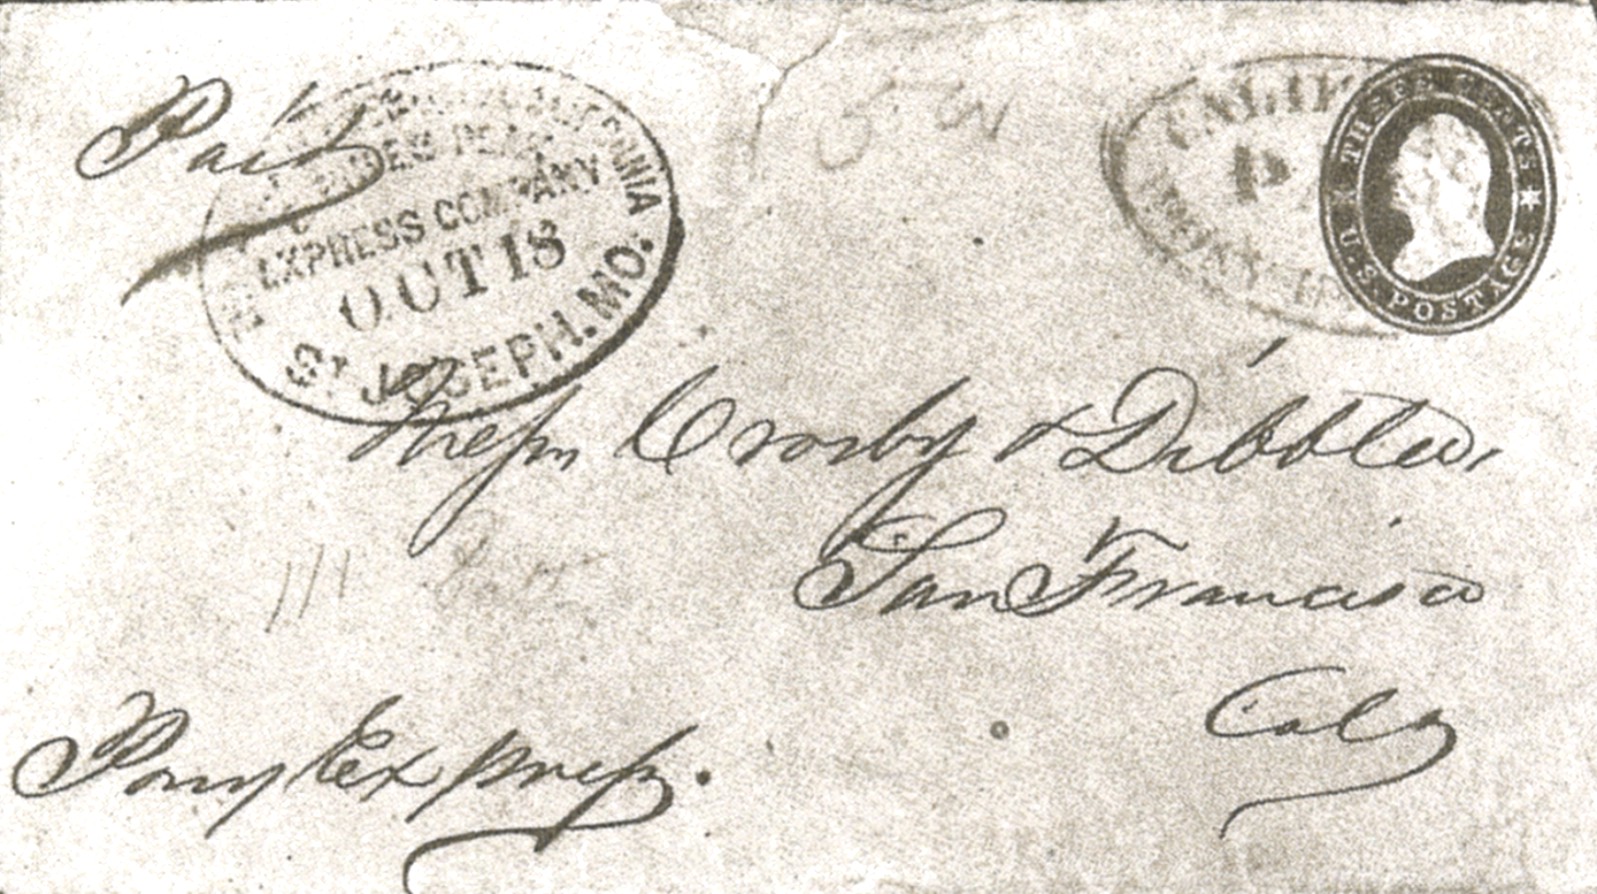 Paid
CALIFORNIA
PEAK
EXPRESS COMPANY
OUT 18
ST JOSEPH. MO.
CALIF
P
PONY
THREE CENTS
U.S. POSTAGE
Messrs Crosby & Dibblee,
San Francisco
Cala
Pony Express.